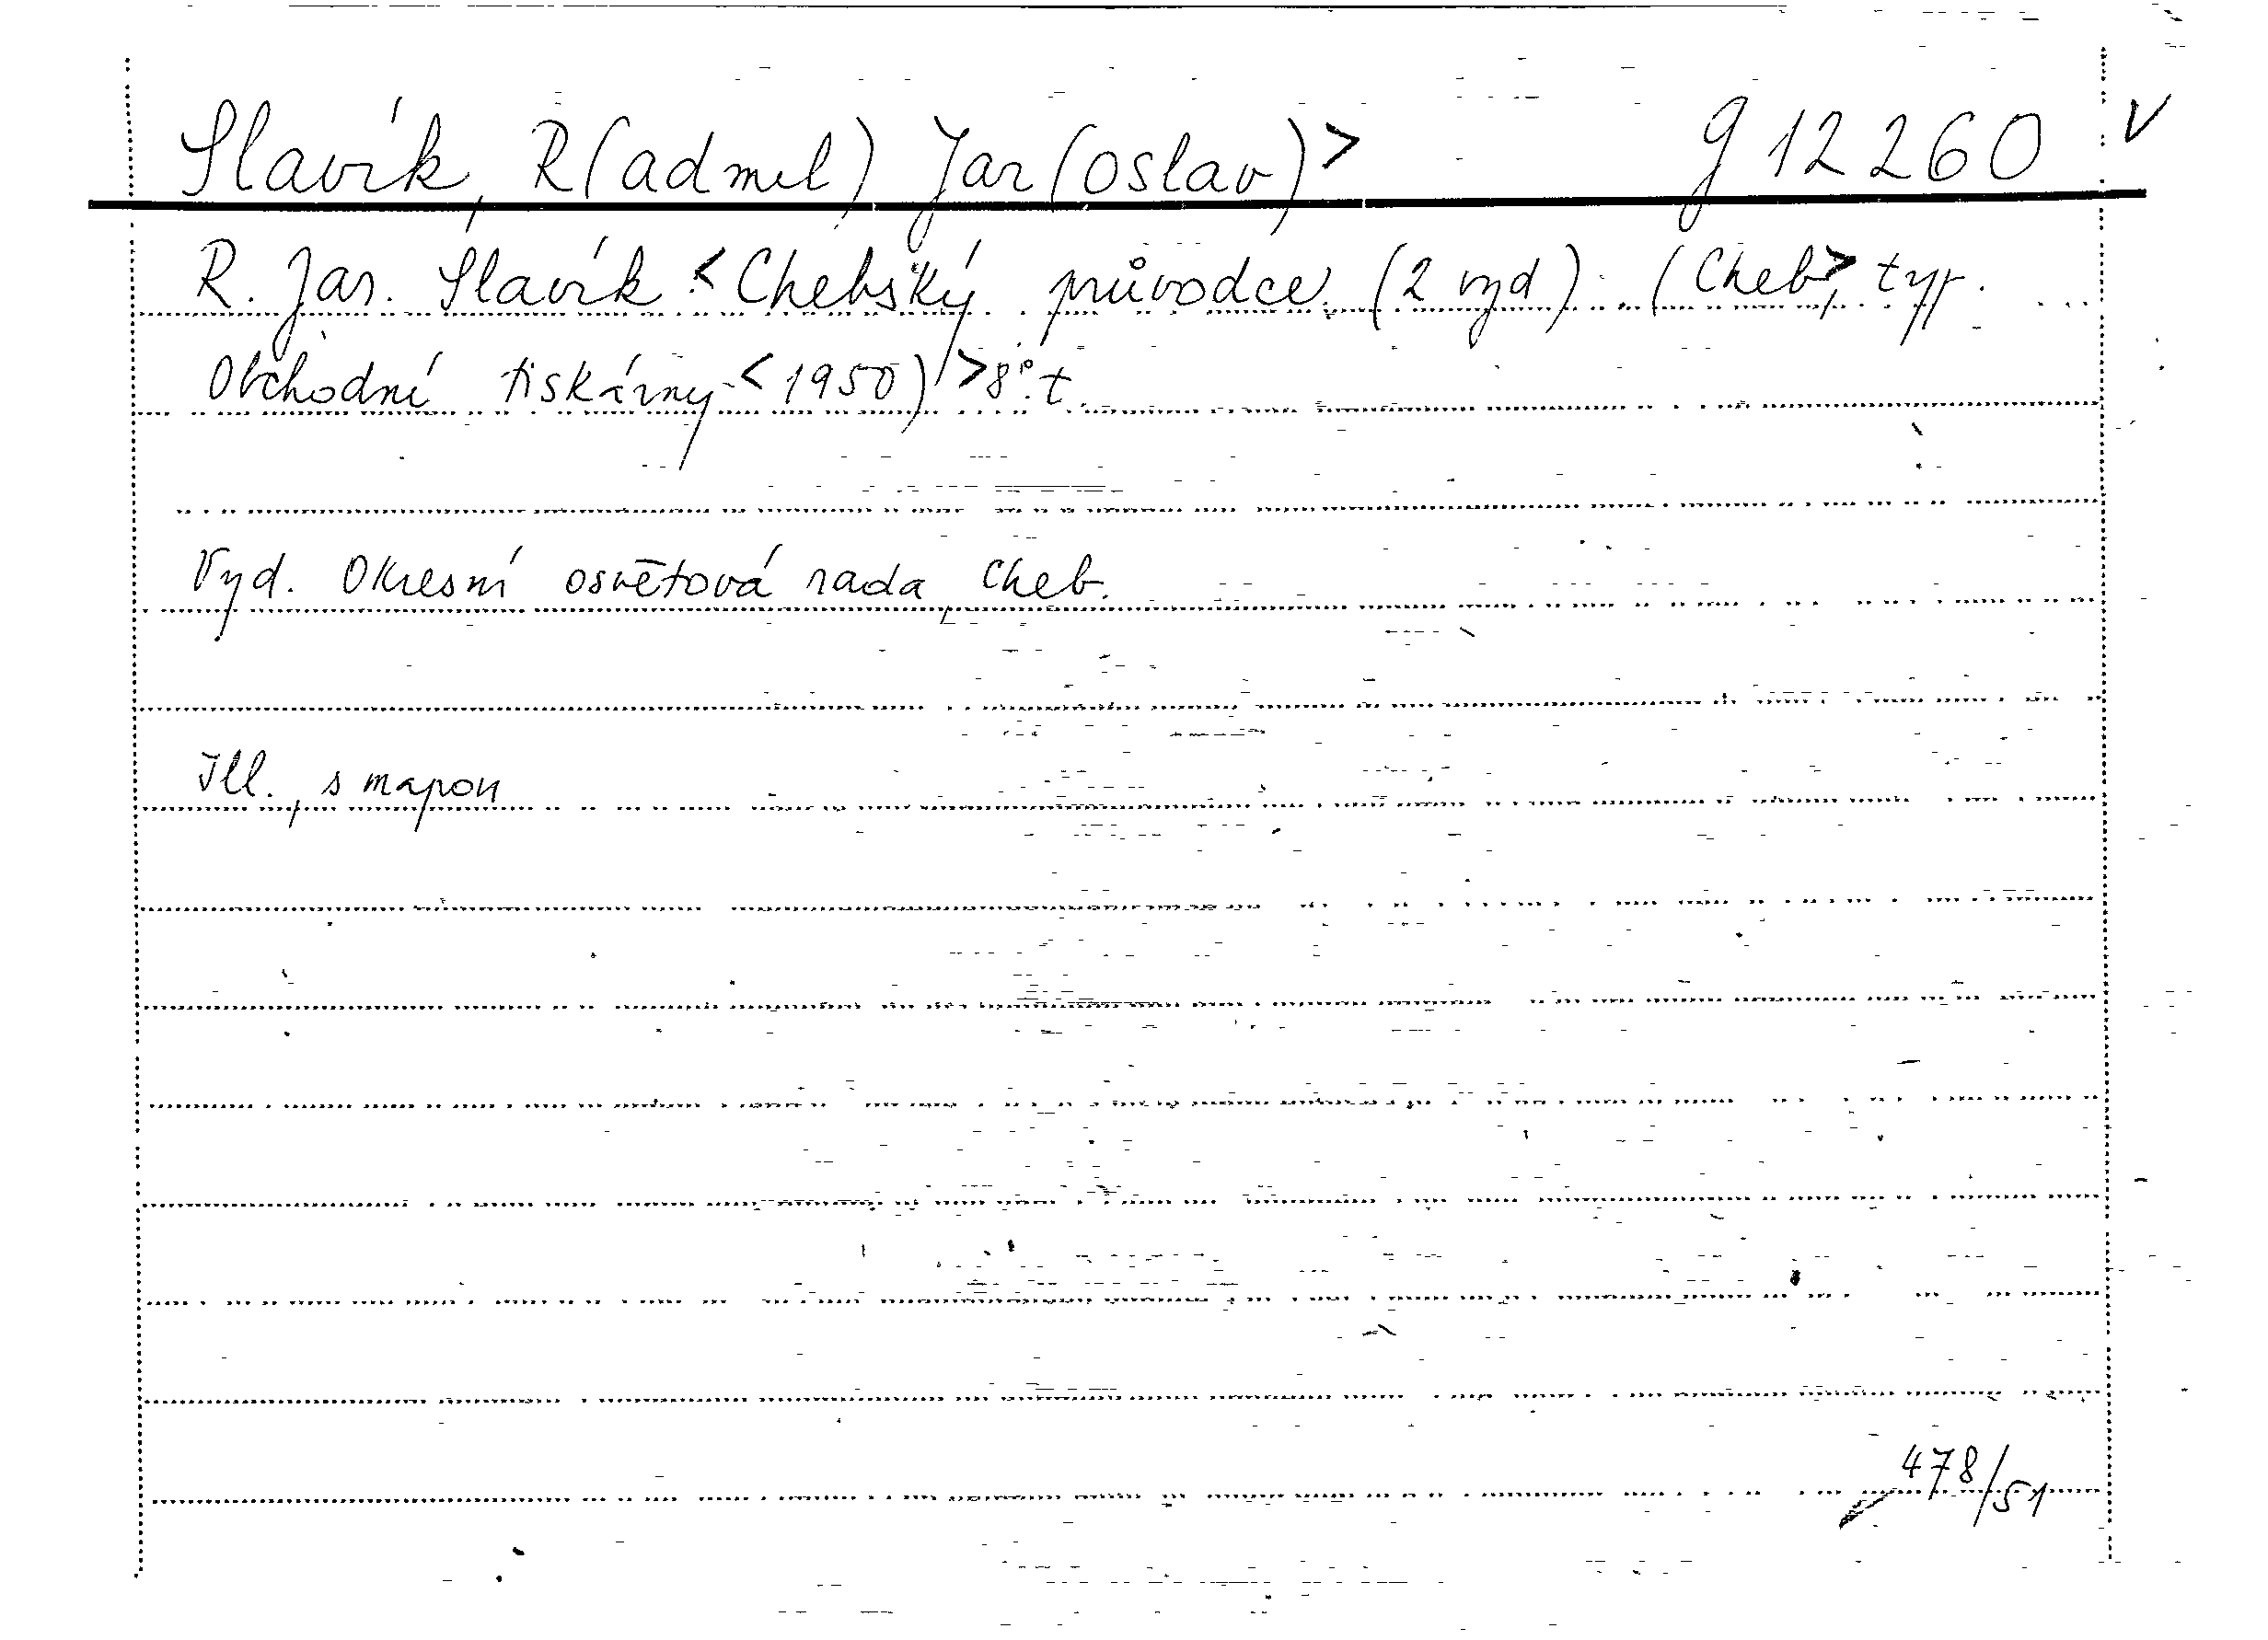 Slavík, R(admil) Jar(oslav)> g 12260 v
R. Jar. Slavík <Chebský průvodce (2 vyd). (Cheb,> typ.
Obchodní tiskárny <1950)> 8°. t.
Vyd. Okresní osvětová rada, Cheb.
Ill., s mapou
478/51